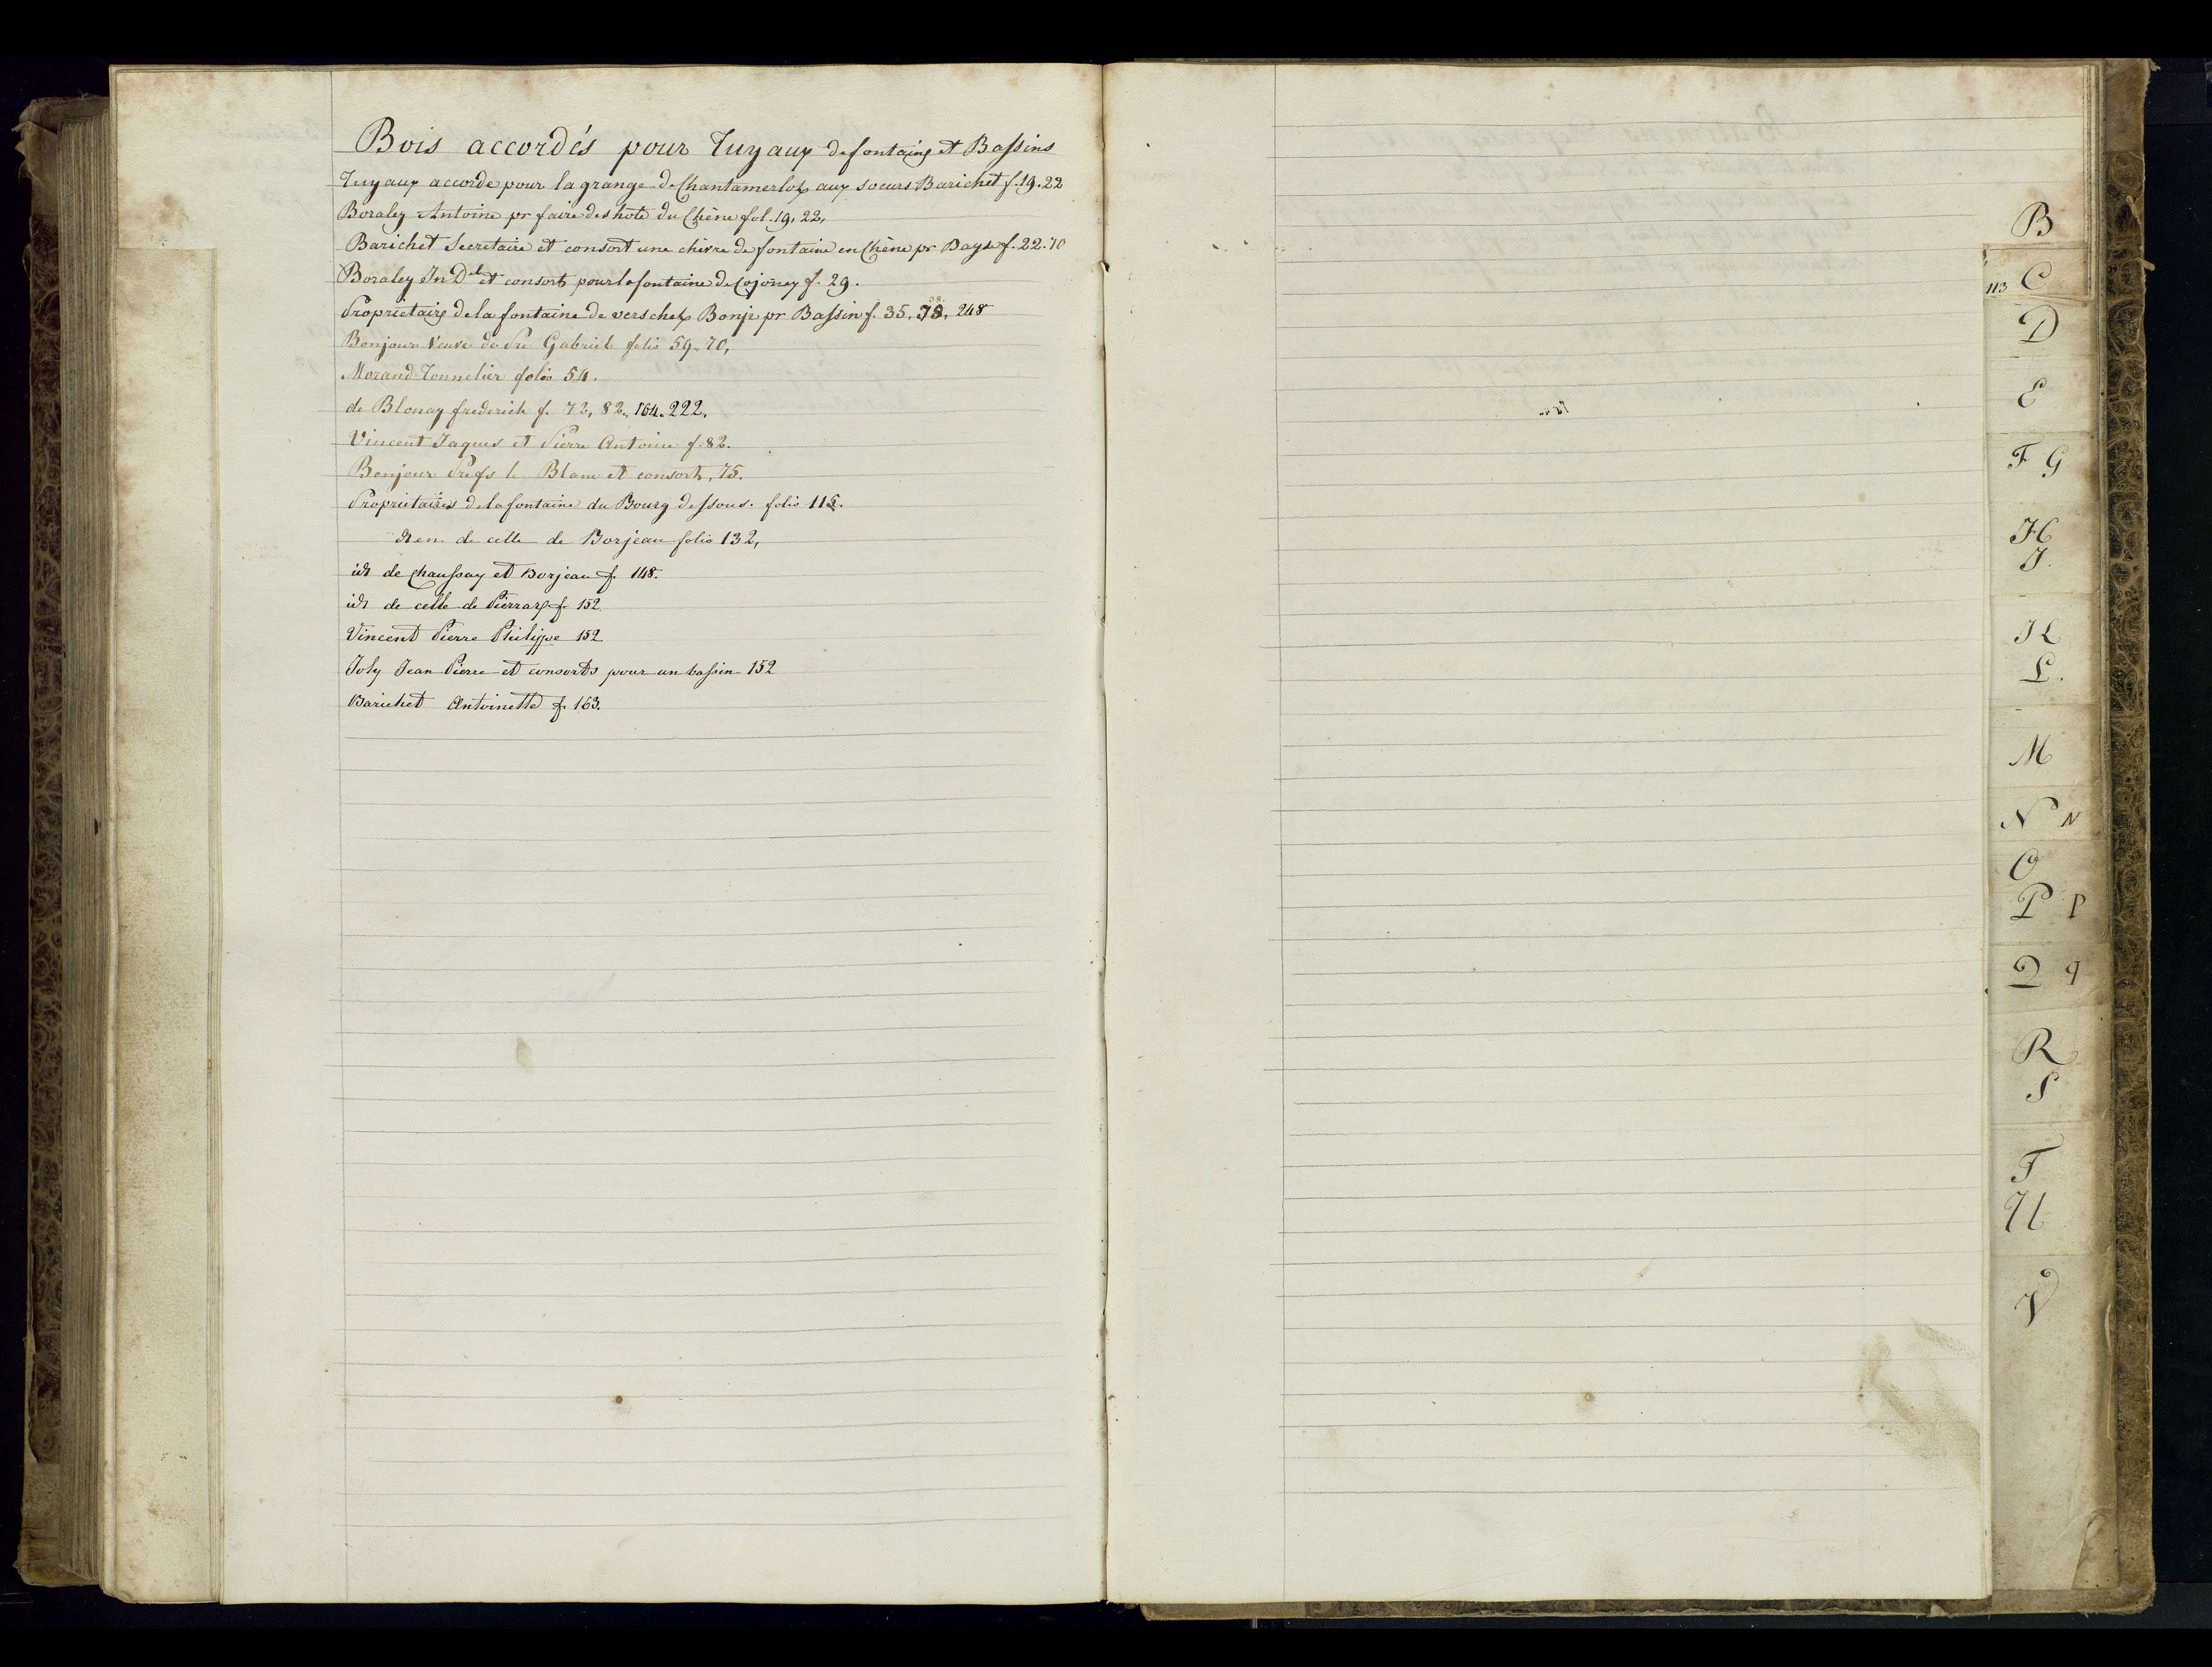 Bois accordés pour Tuyaux de fontaine et Bassins
Tuyaux accordé pour la grange de Chantamerloz aux soeurs Barichet f. 19. 22
Boraley Antoine pr faire des hote du Chêne fol. 19, 22,
Barichet Secretaire et consort une chèvre de fontaine en Chêne pr Bayse f. 22. 70
Boraley Jn Dl et consorts pour la fontaine de Cojonney f. 29.
Proprietaire de la fontaine de vers chez Bonjr pr Bassin f. 35. 38. 248
Bonjour Veuve de Pre Gabriel folio 59. 70,
Morand Tonnelier folio 54.
de Blonay frederich f. 72, 82, 164. 222.
Vincent Jaques et Pierre Antoine f. 82.
Bonjour Pre fs le Blanc et consorts, 75.
Proprietaires de la fontaine du Bourg dessous. folio 115.
Item de celle de Borjeau folio 132,
id de Chaussay et Borjeau f. 148.
id de celle de Pierraz f. 152
Vincent Pierre Philippe 152
Joly Jean Pierre et consorts pour un bassin 152
Barichet Antoinette f. 163.
B
113 C
D
E
F G
H
J.
K
L.
M
N N
O
P P
Q q
R
S
T
U
V